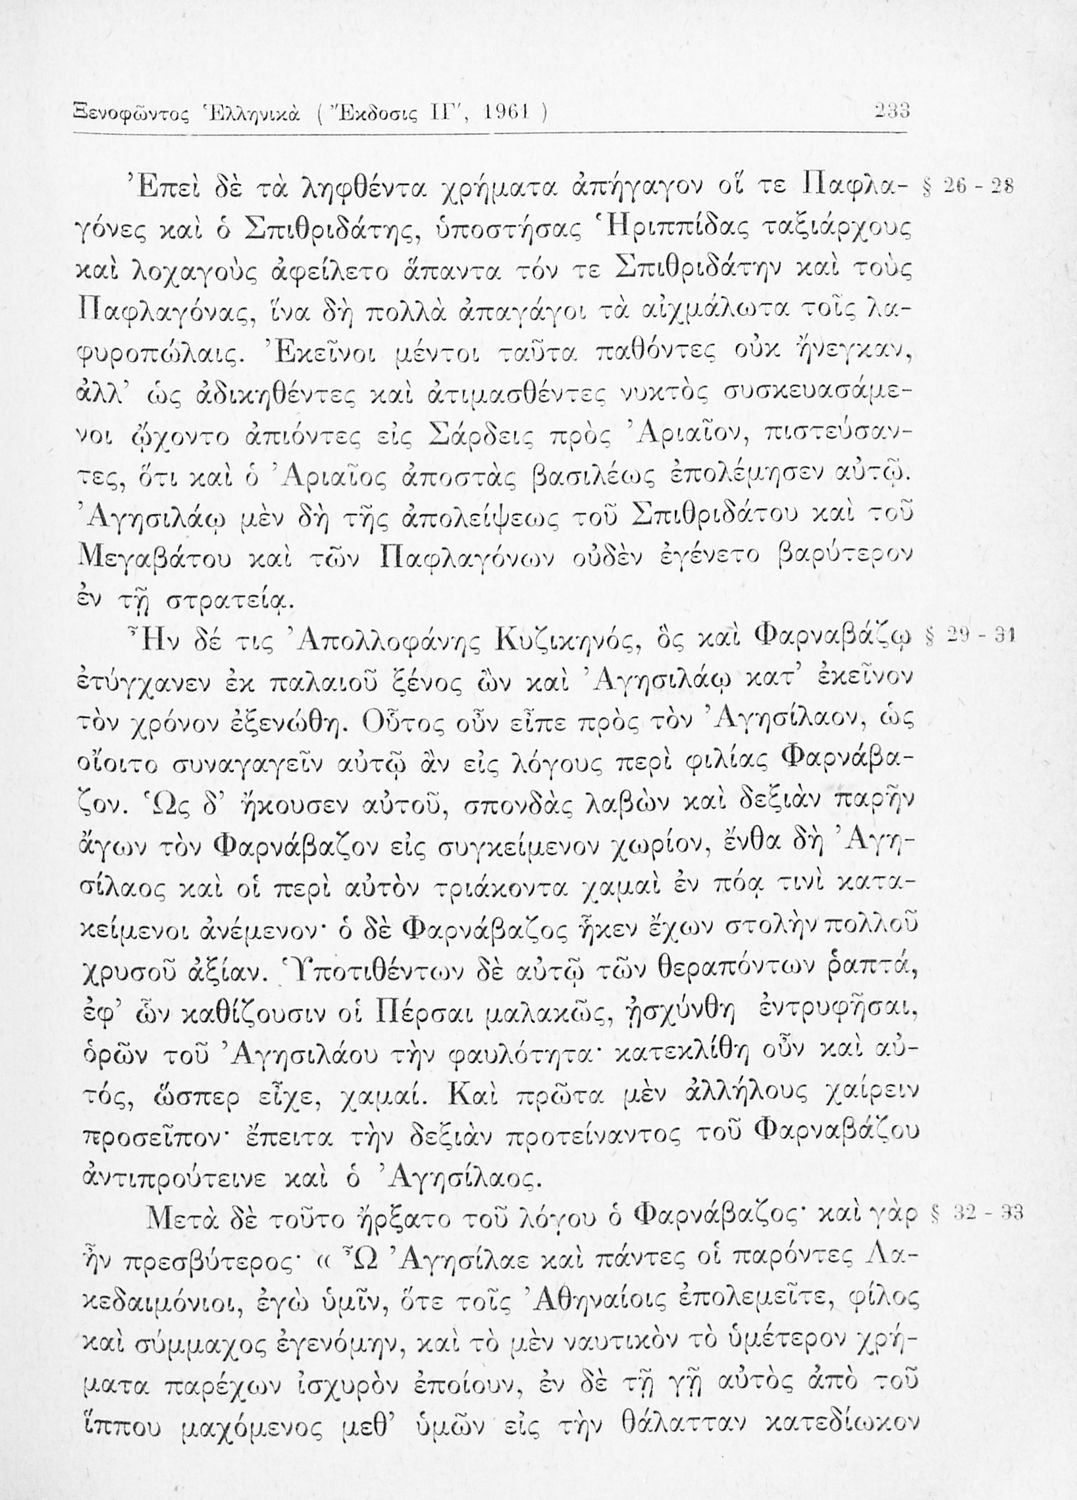 Ξενοφῶντος Ἑλληνικὰ ( Ἔκδοσις ΙΓ′, 1961 ) 233
Ἐπεὶ δὲ τὰ ληφθέντα χρήματα ἀπήγαγον οἵ τε Παφλα- § 26 - 28
γόνες καὶ ὁ Σπιθριδάτης, ὑποστήσας Ἡριππίδας ταξιάρχους
καὶ λοχαγοὺς ἀφείλετο ἅπαντα τόν τε Σπιθριδάτην καὶ τοὺς
Παφλαγόνας, ἵνα δὴ πολλὰ ἀπαγάγοι τὰ αἰχμάλωτα τοῖς λα-
φυροπώλαις. Ἐκεῖνοι μέντοι ταῦτα παθόντες οὐκ ἤνεγκαν,
ἀλλ’ ὡς ἀδικηθέντες καὶ ἀτιμασθέντες νυκτὸς συσκευασάμε-
νοι ᾤχοντο ἀπιόντες εἰς Σάρδεις πρὸς Ἀριαῖον, πιστεύσαν-
τες, ὅτι καὶ ὁ Ἀριαῖος ἀποστὰς βασιλέως ἐπολέμησεν αὐτῷ.
Ἀγησιλάῳ μὲν δὴ τῆς ἀπολείψεως τοῦ Σπιθριδάτου καὶ τοῦ
Μεγαβάτου καὶ τῶν Παφλαγόνων οὐδὲν ἐγένετο βαρύτερον
ἐν τῇ στρατείᾳ.
Ἦν δέ τις Ἀπολλοφάνης Κυζικηνός, ὃς καὶ Φαρναβάζῳ § 29 - 31
ἐτύγχανεν ἐκ παλαιοῦ ξένος ὢν καὶ Ἀγησιλάῳ κατ’ ἐκεῖνον
τὸν χρόνον ἐξενώθη. Οὗτος οὖν εἶπε πρὸς τὸν Ἀγησίλαον, ὡς
οἴοιτο συναγαγεῖν αὐτῷ ἂν εἰς λόγους περὶ φιλίας Φαρνάβα-
ζον. Ὡς δ’ ἤκουσεν αὐτοῦ, σπονδὰς λαβὼν καὶ δεξιὰν παρῆν
ἄγων τὸν Φαρνάβαζον εἰς συγκείμενον χωρίον, ἔνθα δὴ Ἀγη-
σίλαος καὶ οἱ περὶ αὐτὸν τριάκοντα χαμαὶ ἐν πόᾳ τινὶ κατα-
κείμενοι ἀνέμενον· ὁ δὲ Φαρνάβαζος ἧκεν ἔχων στολὴν πολλοῦ
χρυσοῦ ἀξίαν. Ὑποτιθέντων δὲ αὐτῷ τῶν θεραπόντων ῥαπτά,
ἐφ’ ὧν καθίζουσιν οἱ Πέρσαι μαλακῶς, ᾐσχύνθη ἐντρυφῆσαι,
ὁρῶν τοῦ Ἀγησιλάου τὴν φαυλότητα· κατεκλίθη οὖν καὶ αὐ-
τός, ὥσπερ εἶχε, χαμαί. Καὶ πρῶτα μὲν ἀλλήλους χαίρειν
προσεῖπον· ἔπειτα τὴν δεξιὰν προτείναντος τοῦ Φαρναβάζου
ἀντιπρούτεινε καὶ ὁ Ἀγησίλαος.
Μετὰ δὲ τοῦτο ἤρξατο τοῦ λόγου ὁ Φαρνάβαζος· καὶ γὰρ § 32 - 33
ἦν πρεσβύτερος· « Ὦ Ἀγησίλαε καὶ πάντες οἱ παρόντες Λα-
κεδαιμόνιοι, ἐγὼ ὑμῖν, ὅτε τοῖς Ἀθηναίοις ἐπολεμεῖτε, φίλος
καὶ σύμμαχος ἐγενόμην, καὶ τὸ μὲν ναυτικὸν τὸ ὑμέτερον χρή-
ματα παρέχων ἰσχυρὸν ἐποίουν, ἐν δὲ τῇ γῇ αὐτὸς ἀπὸ τοῦ
ἵππου μαχόμενος μεθ’ ὑμῶν εἰς τὴν θάλατταν κατεδίωκον